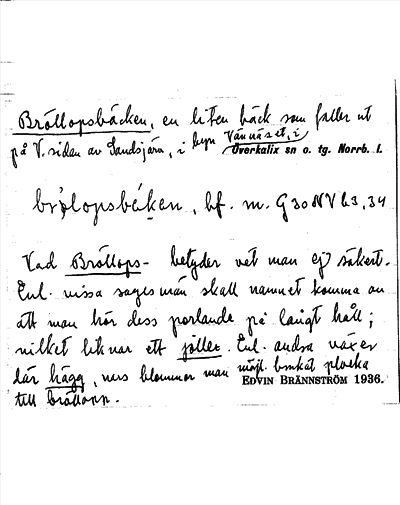 Bröllopsbäcken, en liten bäck som faller ut
på V. sidan av Sandsjärn, i byn Vännäset, i
Överkalix sn o. tg. Norrb. l.
brølopsbäken, bf. m. G 30 NV b3, 34
Vad Bröllops- betyder vet man ej säkert.
Enl. vissa sagesmän skall namnet komma av
att man hör dess porlande på långt håll;
vilket liknar ett joller. Enl. andra växer
där hägg, vars blommor man möjl. brukat plocka
till bröllopp.
EDVIN BRÄNNSTRÖM 1936.